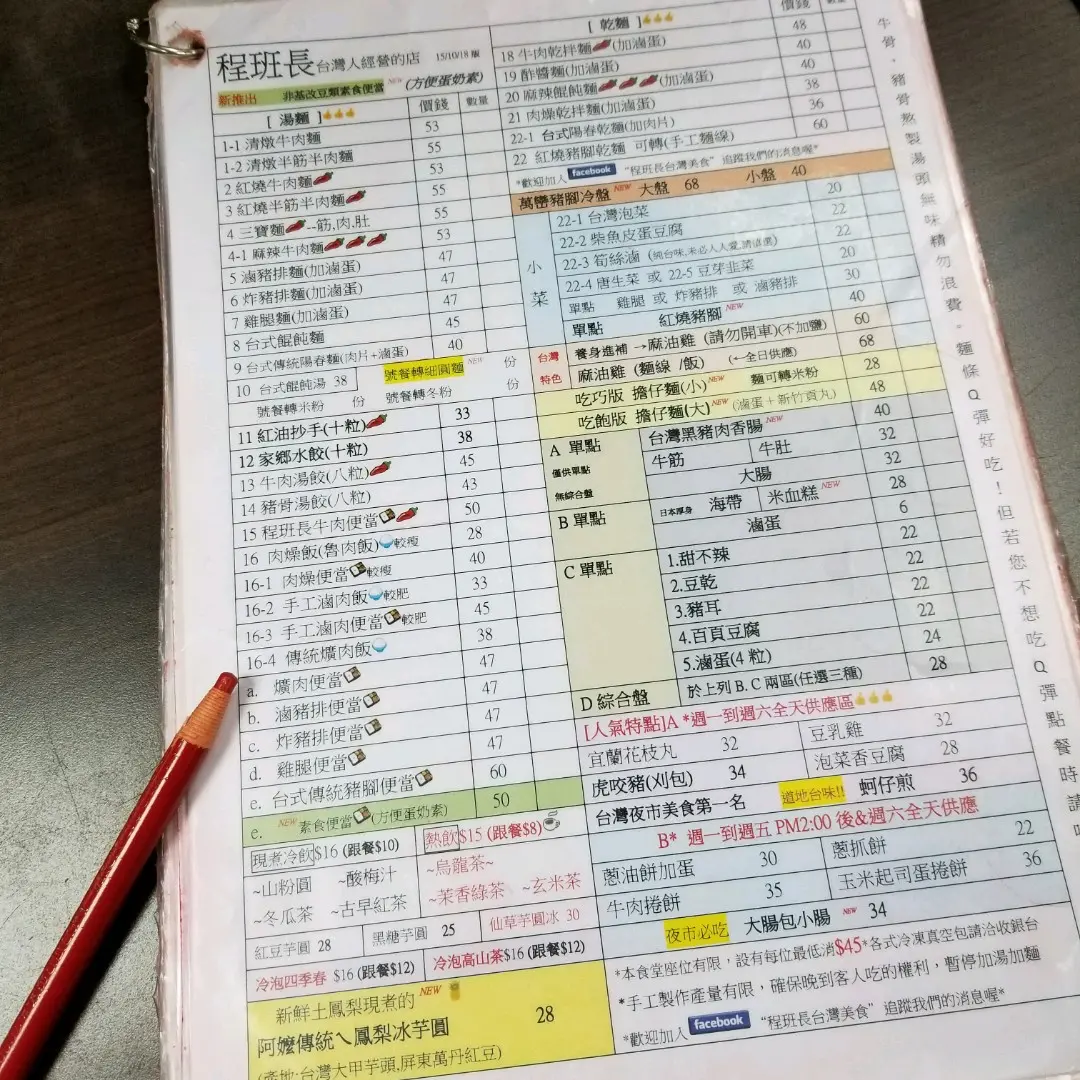 程班長 台灣人經營的店 15/10/18 版
新推出 非基改豆類素食便當 NEW (方便蛋奶素)
[ 湯麵 ] 價錢 數量
1-1 清燉牛肉麵 53
1-2 清燉半筋半肉麵 55
2 紅燒牛肉麵 53
3 紅燒半筋半肉麵 55
4 三寶麵--筋,肉,肚 55
4-1 麻辣牛肉麵 53
5 滷豬排麵(加滷蛋) 47
6 炸豬排麵(加滷蛋) 47
7 雞腿麵(加滷蛋) 47
8 台式餛飩麵 45
9 台式傳統陽春麵(肉片+滷蛋) 40
10 台式餛飩湯 38 號餐轉細圓麵 NEW 份
號餐轉米粉 份 號餐轉冬粉 份
11 紅油抄手(十粒) 33
12 家鄉水餃(十粒) 38
13 牛肉湯餃(八粒) 45
14 豬骨湯餃(八粒) 43
15 程班長牛肉便當 50
16 肉燥飯(魯肉飯) 較瘦 28
16-1 肉燥便當 較瘦 40
16-2 手工滷肉飯 較肥 33
16-3 手工滷肉便當 較肥 45
16-4 傳統爌肉飯 38
a. 爌肉便當 47
b. 滷豬排便當 47
c. 炸豬排便當 47
d. 雞腿便當 47
e. 台式傳統豬腳便當 60
e. NEW 素食便當(方便蛋奶素) 50
現煮冷飲$16 (跟餐$10)
~山粉圓 ~酸梅汁
~冬瓜茶 ~古早紅茶
熱飲$15 (跟餐$8)
~烏龍茶~
~茉香綠茶 ~玄米茶
紅豆芋圓 28 黑糖芋圓 25 仙草芋圓冰 30
冷泡四季春 $16 (跟餐$12) 冷泡高山茶$16 (跟餐$12)
新鮮土鳳梨現煮的 NEW
阿嬤傳統ㄟ鳳梨冰芋圓 28
(產地:台灣大甲芋頭,屏東萬丹紅豆)
[ 乾麵 ] 價錢 數量
18 牛肉乾拌麵(加滷蛋) 48
19 酢醬麵(加滷蛋) 40
20 麻辣餛飩麵(加滷蛋) 40
21 肉燥乾拌麵(加滷蛋) 38
22-1 台式陽春乾麵(加肉片) 36
22 紅燒豬腳乾麵 可轉(手工麵線) 60
*歡迎加入 facebook “程班長台灣美食” 追蹤我們的消息喔*
萬巒豬腳冷盤 NEW 大盤 68 小盤 40
小菜
22-1 台灣泡菜 20
22-2 柴魚皮蛋豆腐 22
22-3 筍絲滷 22
22-4 唐生菜 或 22-5 豆芽韭菜 20
單點 雞腿 或 炸豬排 或 滷豬排 30
單點 紅燒豬腳 NEW 40
台灣特色
養身進補→麻油雞 (請勿開車)(不加鹽) 60
麻油雞 (麵線 /飯) (←全日供應) 68
吃巧版 擔仔麵(小) NEW 麵可轉米粉 28
吃飽版 擔仔麵(大) NEW (滷蛋+新竹貢丸) 48
A 單點 僅供單點 無綜合盤
台灣黑豬肉香腸 NEW 40
牛筋 牛肚 32
大腸 32
B 單點
日本厚身 海帶 米血糕 NEW 28
滷蛋 6
C 單點
1.甜不辣 22
2.豆乾 22
3.豬耳 22
4.百頁豆腐 22
5.滷蛋(4 粒) 24
D 綜合盤 於上列 B. C 兩區(任選三種) 28
[人氣特點]A *週一到週六全天供應區
宜蘭花枝丸 32 豆乳雞 32
虎咬豬(刈包) 34 泡菜香豆腐 28
台灣夜市美食第一名 道地台味!! 蚵仔煎 36
B* 週一到週五 PM2:00 後&週六全天供應
蔥油餅加蛋 30 蔥抓餅 22
牛肉捲餅 35 玉米起司蛋捲餅 36
夜市必吃 大腸包小腸 NEW 34
*本食堂座位有限，設有每位最低消$45*各式冷凍真空包請洽收銀台
*手工製作產量有限，確保晚到客人吃的權利，暫停加湯加麵
*歡迎加入 facebook “程班長台灣美食” 追蹤我們的消息喔*
牛骨．豬骨熬製湯頭無味精勿浪費．麵條Q彈好吃！但若您不想吃Q彈點餐時請